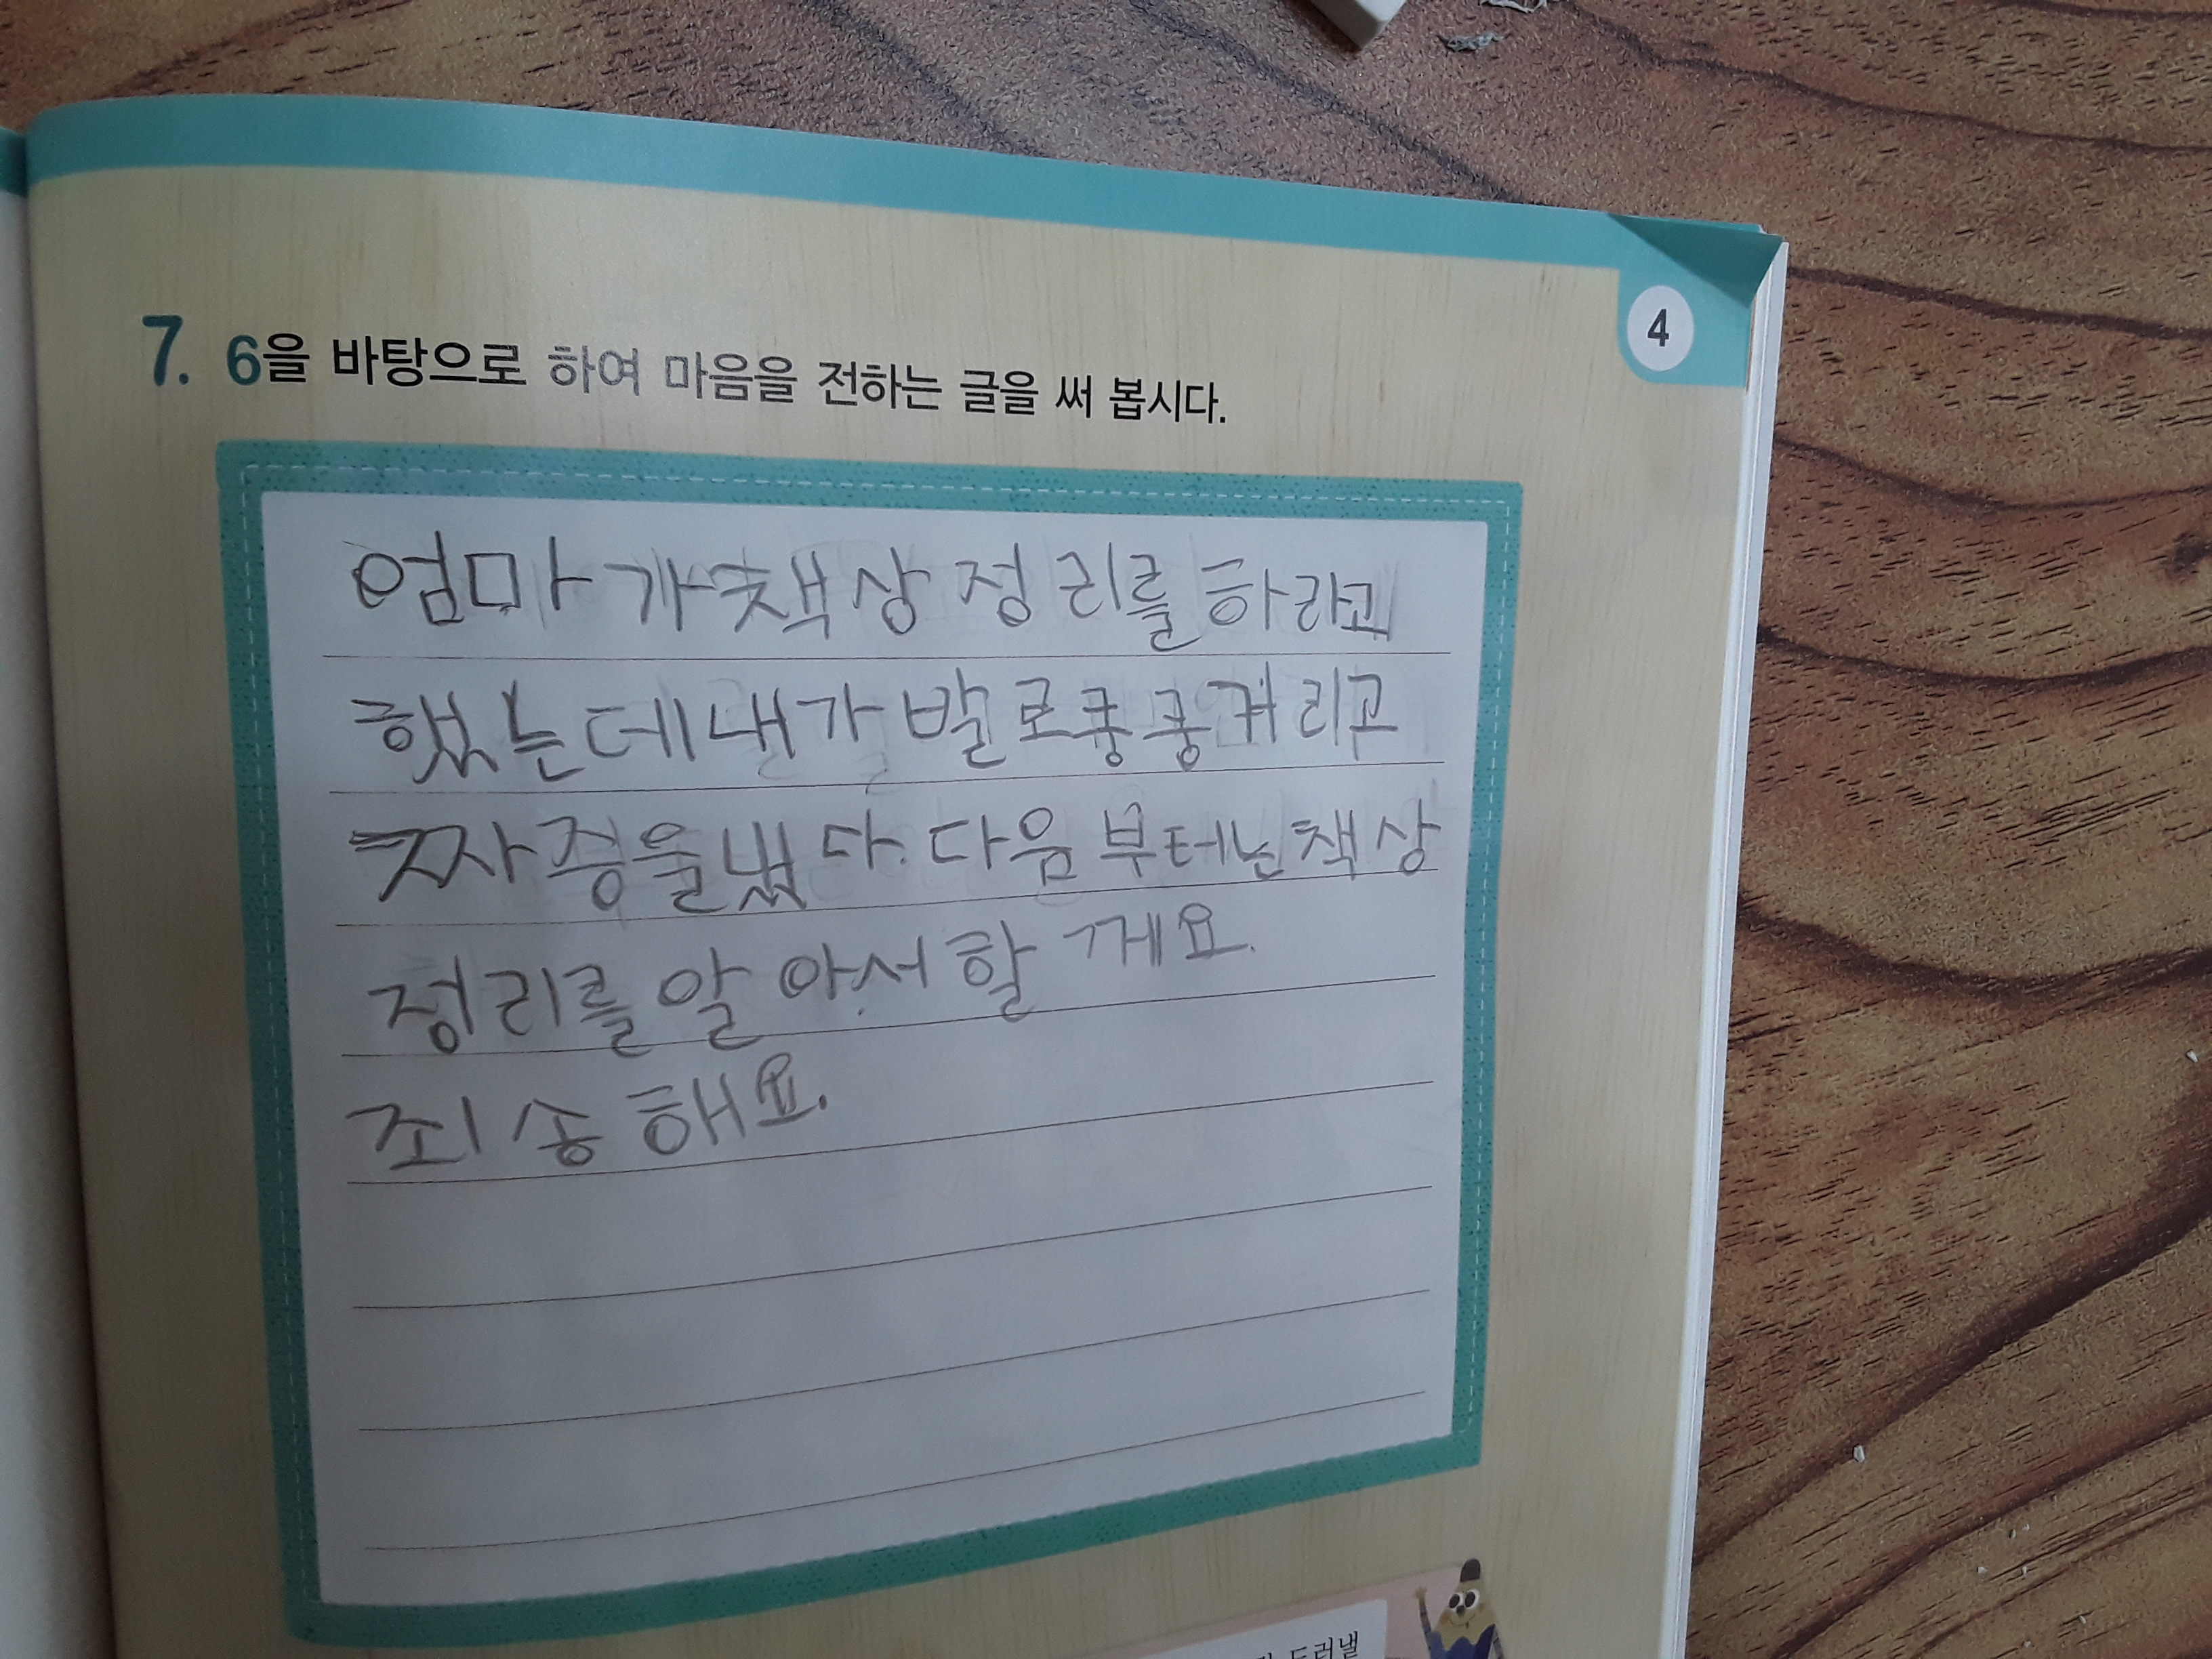 4
7. 6을 바탕으로 하여 마음을 전하는 글을 써 봅시다.
엄마가 책상 정리를 하라고
했는데 내가 발로 쿵쿵거리고
짜증을 냈다. 다음부터는 책상
정리를 알아서 할께요.
죄송해요.
드러낼